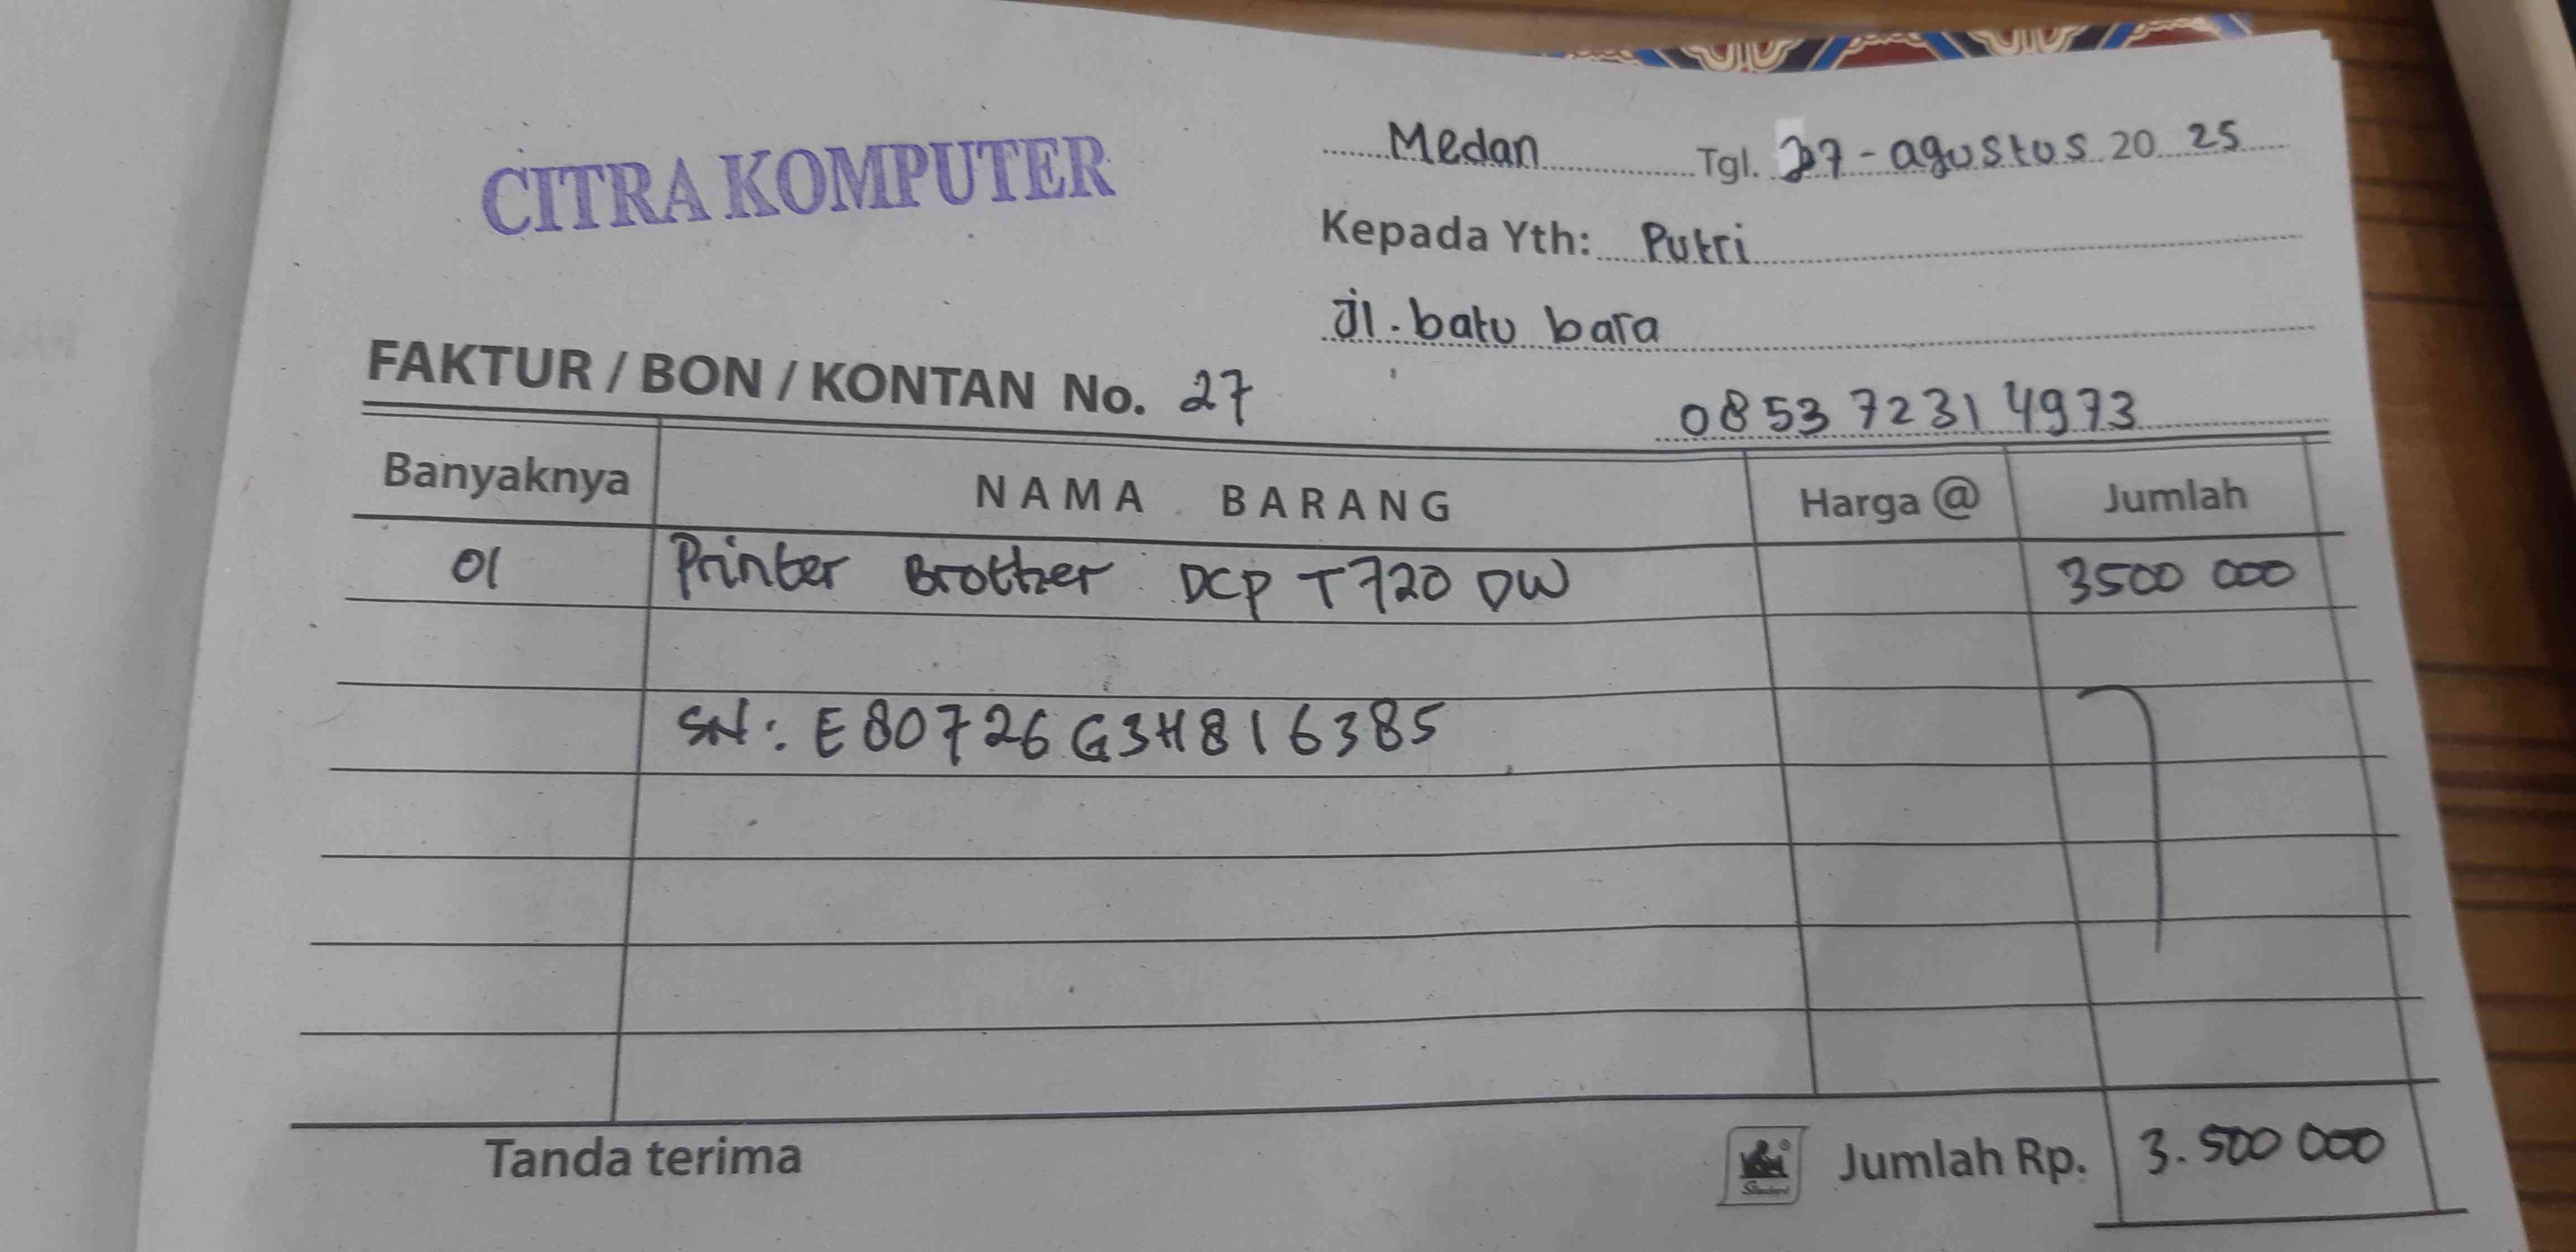 CITRA KOMPUTER
Medan Tgl. 27 - agustos 20 25
Kepada Yth: Putri
Jl. batu bara
FAKTUR / BON / KONTAN No. 27
0853 7231 4973
Banyaknya NAMA BARANG Harga @ Jumlah
01 Printer Brother DCP T720 DW 3500 000
SN: E80726G3H816385
Tanda terima Jumlah Rp. 3.500 000